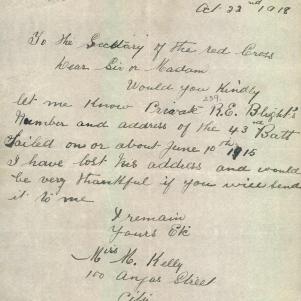 Oct 22nd 1918
To the Secretary of the red Cross
Dear Sir or Madam
Would you Kindly
let me Know Privat R.E. Blight's
239.
Number and address of the 43rd Batt
Sailed on or about June 10th 1915
I have lost his address and would
be very thankful if you will send
it to me
I remain
Yours Etc
Mrs M. Kelly
100 Angas Street
City